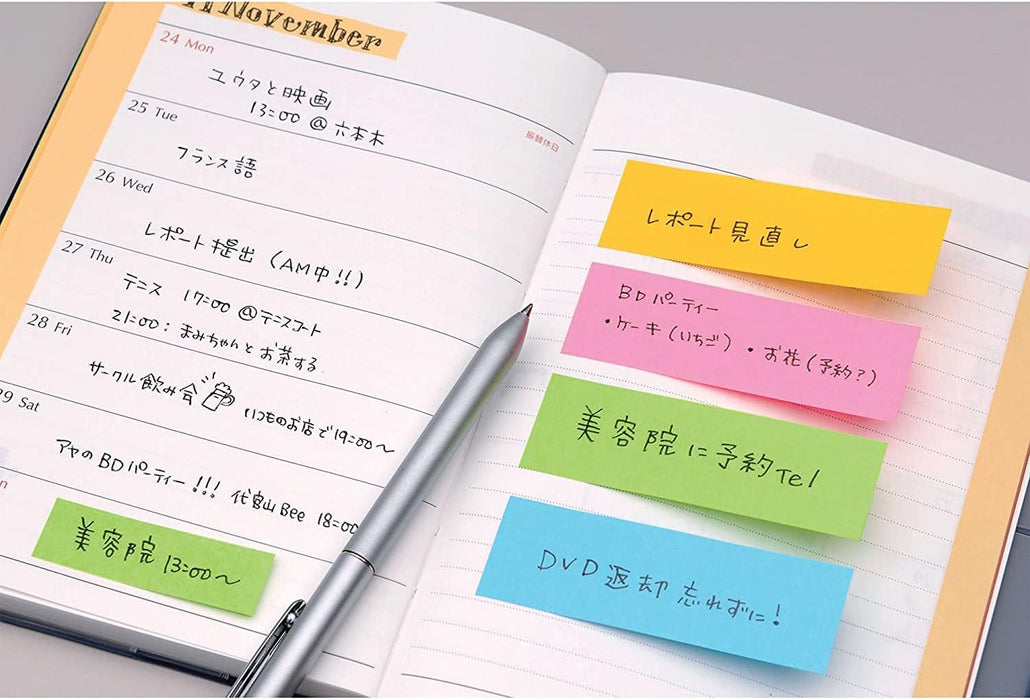 11 November
24 Mon
振替休日
ユウタと映画
13:00 @ 六本木
25 Tue
フランス語
26 Wed
レポート提出 (AM中!!)
27 Thu
テニス 17:00 @テニスコート
21:00: まみちゃんとお茶する
28 Fri
サークル飲み会 いつものお店で19:00〜
29 Sat
アヤのBDパーティー!!! 代官山Bee 18:00
美容院 13:00〜
レポート見直し
BDパーティー
・ケーキ(いちご) ・お花(予約?)
美容院に予約Tel
DVD返却 忘れずに!